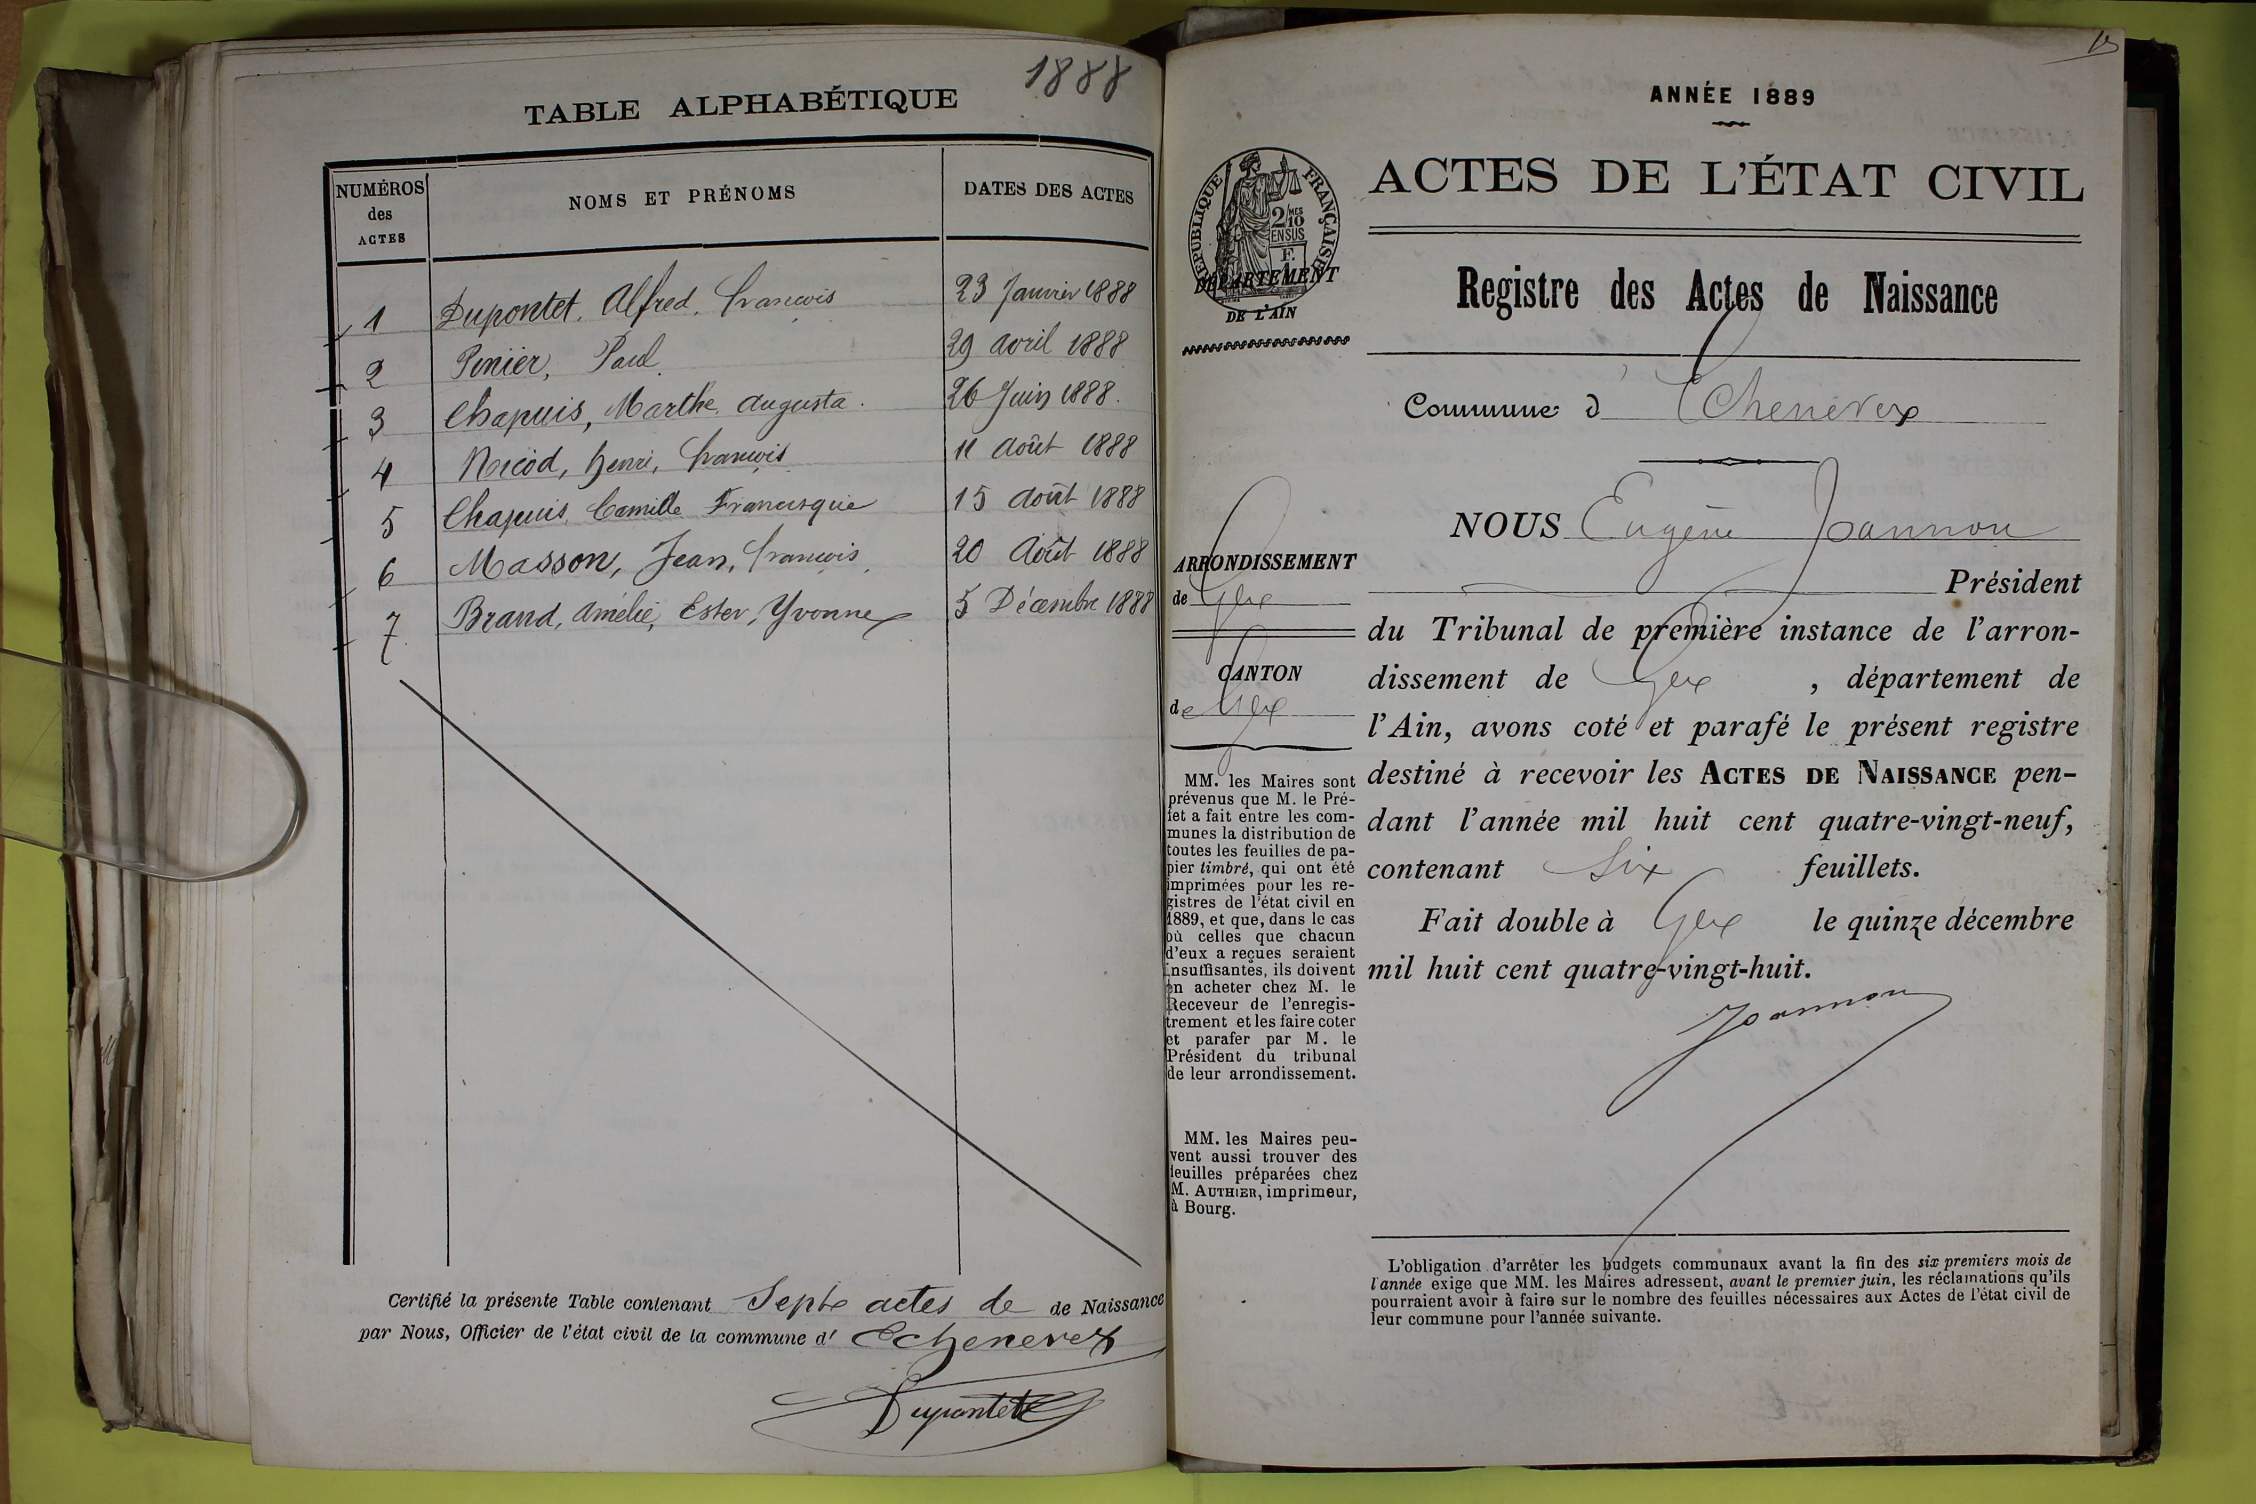 1888
TABLE ALPHABÉTIQUE
NUMÉROS
des
ACTES
NOMS ET PRÉNOMS
DATES DES ACTES
1 Dupontet, Alfred, François 23 Janvier 1888
2 Penier, Paul 29 avril 1888
3 Chapuis, Marthe, Augusta. 26 Juin 1888.
4 Nicod, henri, François 11 Août 1888
5 Chapuis, Camille Francisque 15 août 1888
6 Masson, Jean, François. 20 Août 1888
7 Brand, Amélie, Ester, Yvonne 5 Décembre 1888
Certifié la présente Table contenant Septe actes de de Naissance
par Nous, Officier de l'état civil de la commune d' Echenevex
Dupontet
ANNÉE 1889
RÉPUBLIQUE FRANÇAISE
2/10MES
EN SUS
F.
DÉPARTEMENT
DE L'AIN
ACTES DE L'ÉTAT CIVIL
Registre des Actes de Naissance
Commune d' Echenevex
ARRONDISSEMENT
de Gex
CANTON
de Gex
MM. les Maires sont
prévenus que M. le Pré-
fet a fait entre les com-
munes la distribution de
toutes les feuilles de pa-
pier timbré, qui ont été
imprimées pour les re-
gistres de l'état civil en
1889, et que, dans le cas
où celles que chacun
d'eux a reçues seraient
insuffisantes, ils doivent
en acheter chez M. le
Receveur de l'enregis-
trement et les faire coter
et parafer par M. le
Président du tribunal
de leur arrondissement.
MM. les Maires peu-
vent aussi trouver des
feuilles préparées chez
M. AUTHIER, imprimeur,
à Bourg.
NOUS Eugène Joannon
Président
du Tribunal de première instance de l'arron-
dissement de Gex , département de
l'Ain, avons coté et parafé le présent registre
destiné à recevoir les ACTES DE NAISSANCE pen-
dant l'année mil huit cent quatre-vingt-neuf,
contenant Six feuillets.
Fait double à Gex le quinze décembre
mil huit cent quatre-vingt-huit.
Joannon
L'obligation d'arrêter les budgets communaux avant la fin des six premiers mois de
l'année exige que MM. les Maires adressent, avant le premier juin, les réclamations qu'ils
pourraient avoir à faire sur le nombre des feuilles nécessaires aux Actes de l'état civil de
leur commune pour l'année suivante.